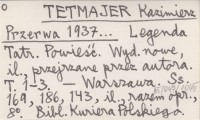 TETMAJER Kazimierz
Przerwa 1937... Legenda
Tatr. Powieść. Wyd. nowe,
il., przejrzane przez autora.
T. 1-3. — Warszawa. Ss.
169, 186, 143, il., razem opr.,
8°. Bibl. Kuriera Polskiego.